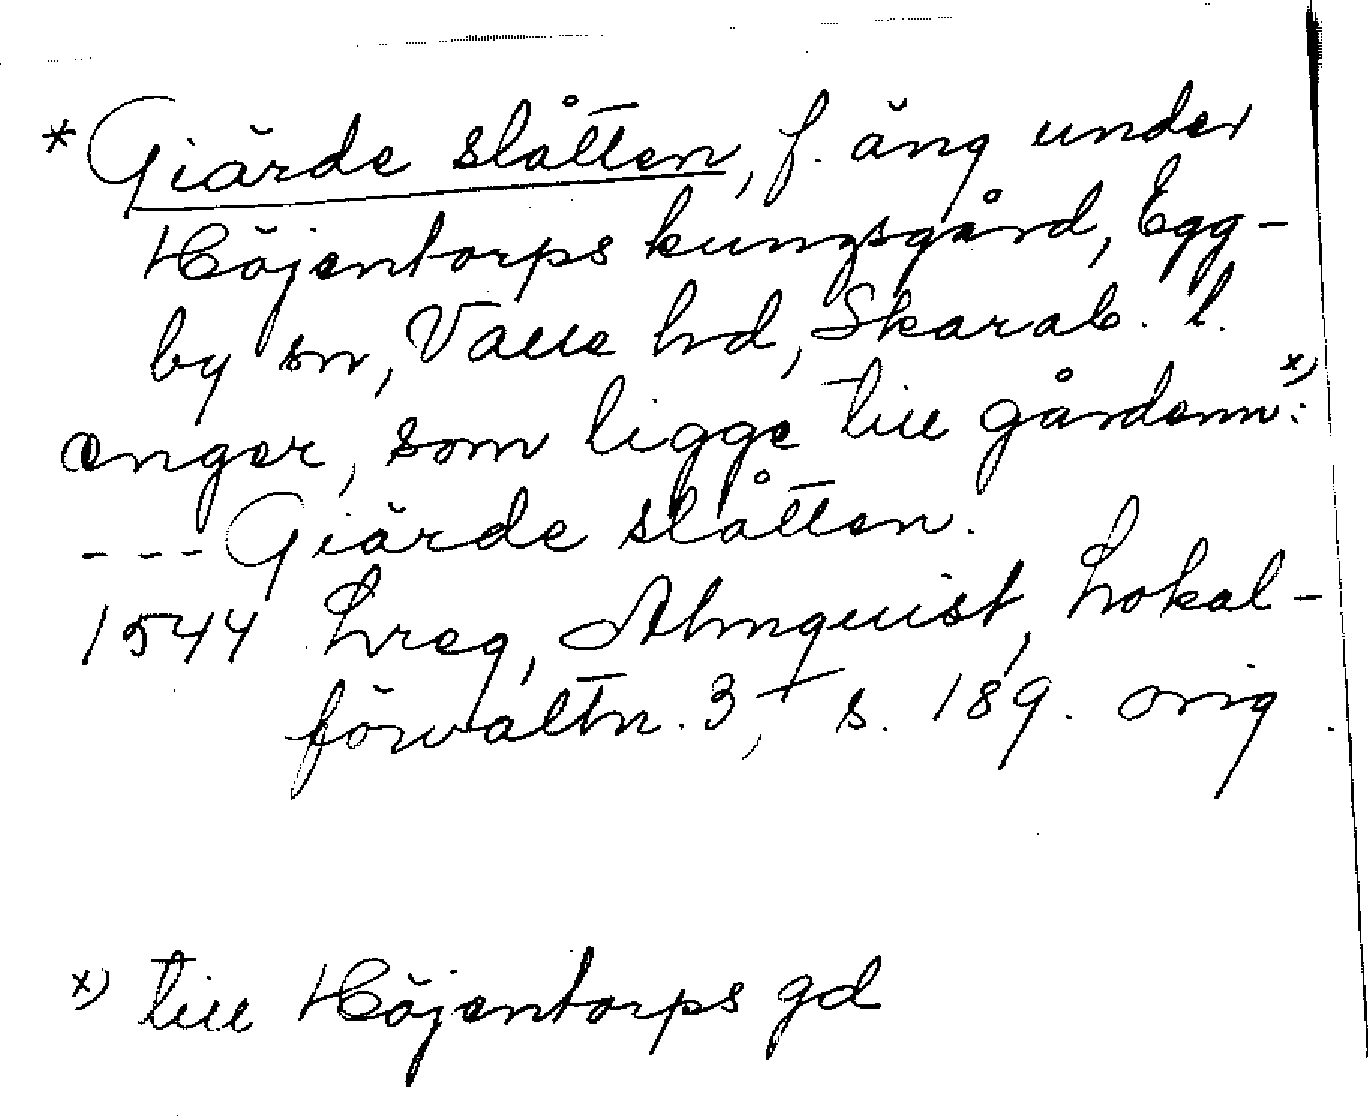 * Giärde slåtten, f. äng under
Höjentorps kungsgård, Egg-
by sn, Valle hd, Skarab. l.
enger, som ligge till gårdenn x):
--- Giärde slåtten.
1544 Lreg, Almquist, Lokal-
förvaltn. 3, s. 189. orig.
x) till Höjentorps gd